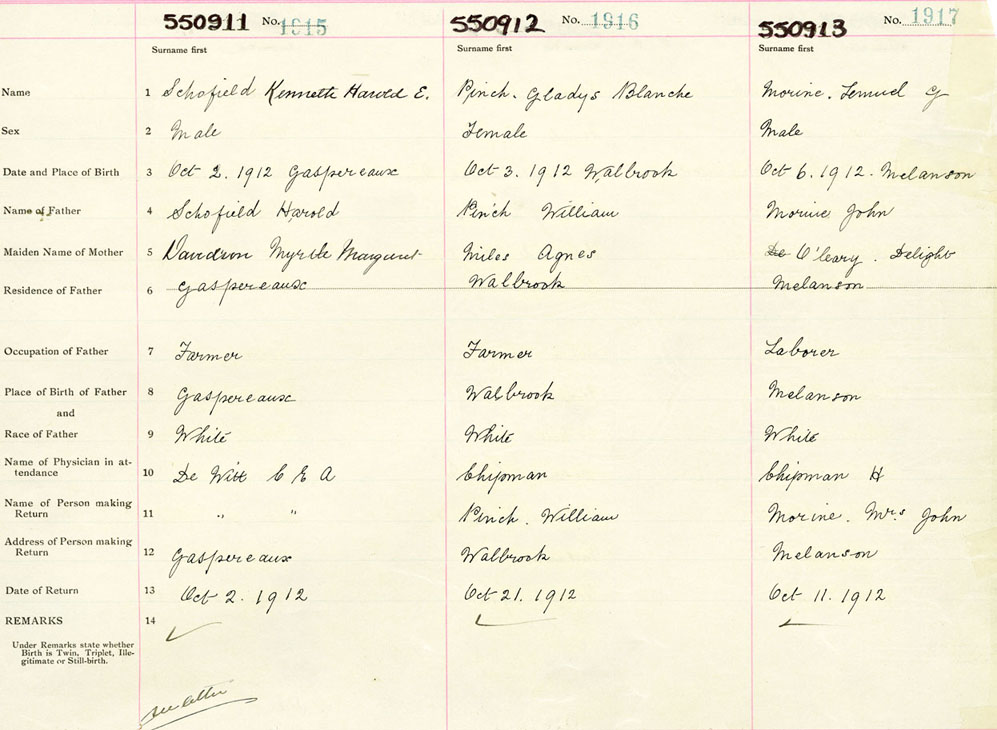 550911 No. 1915 550912 No. 1916 550913 No. 1917
Surname first Surname first Surname first
Name 1 Schofield Kenneth Harold E. Pinch. Gladys Blanche Morine. Lemuel G
Sex 2 Male Female Male
Date and Place of Birth 3 Oct 2. 1912 Gaspereaux Oct 3. 1912 Walbrook Oct 6. 1912. Melanson
Name of Father 4 Schofield Harold Pinch William Morine John
Maiden Name of Mother 5 Davidson Myrtle Margaret Miles Agnes De O'leary. Delight
Residence of Father 6 Gaspereaux Walbrook Melanson
Occupation of Father 7 Farmer Farmer Laborer
Place of Birth of Father 8 Gaspereaux Walbrook Melanson
and
Race of Father 9 White White White
Name of Physician in at-
tendance 10 De Witt C E A Chipman Chipman H
Name of Person making
Return 11 " " Pinch. William Morine. Mrs John
Address of Person making
Return 12 Gaspereaux Walbrook Melanson
Date of Return 13 Oct 2. 1912 Oct 21. 1912 Oct 11. 1912
REMARKS 14
Under Remarks state whether
Birth is Twin, Triplet, Ille-
gitimate or Still-birth.